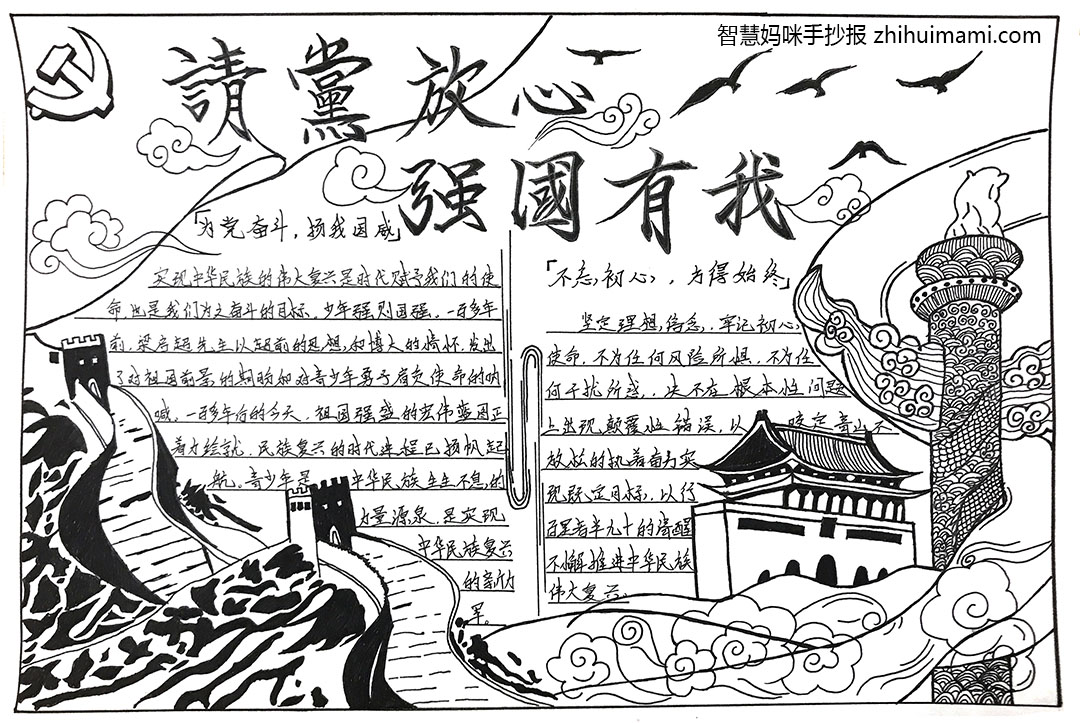 智慧妈咪手抄报 zhihuimami.com
請黨放心
强國有我
「为党奋斗，扬我国威」
实现中华民族的伟大复兴是时代赋予我们的使
命，也是我们为之奋斗的目标。少年强则国强。一百多年
前，梁启超先生以超前的思想，和博大的情怀，发出
了对祖国前景的期盼和对青少年勇于肩负使命的呐
喊。一百多年后的今天，祖国强盛的宏伟蓝图正
着力绘就，民族复兴的时代征程已扬帆起
航。青少年是 中华民族生生不息的
力量源泉，是实现
中华民族复兴
的新欣
军。
「不忘初心，方得始终」
坚定理想信念，牢记初心
使命，不为任何风险所惧，不为任
何干扰所惑，决不在根本性问题
上出现颠覆性错误，以 咬定青山不
放松的执着奋力实
现既定目标，以行
百里者半九十的清醒
不懈推进中华民族
伟大复兴。